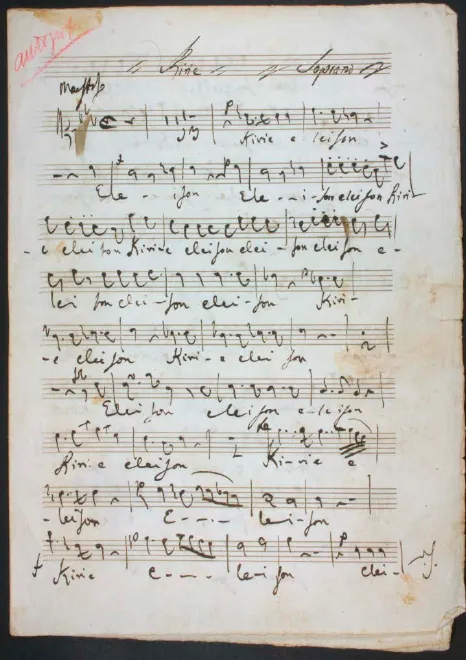 autogr
Kirie Soprano
Maestoso
Kirie eleison
Ele - - ison Ele - - i - son eleison Kiri
- e eleison Kirie eleison elei - son eleison e -
lei son elei - son elei - son Kiri -
- e eleison Kiri - e elei son
Elei son elei son e - leison
Kirie eleison Ki - rie e
- leison E - - - le - i - son
f Kirie e - - - le - i son elei -